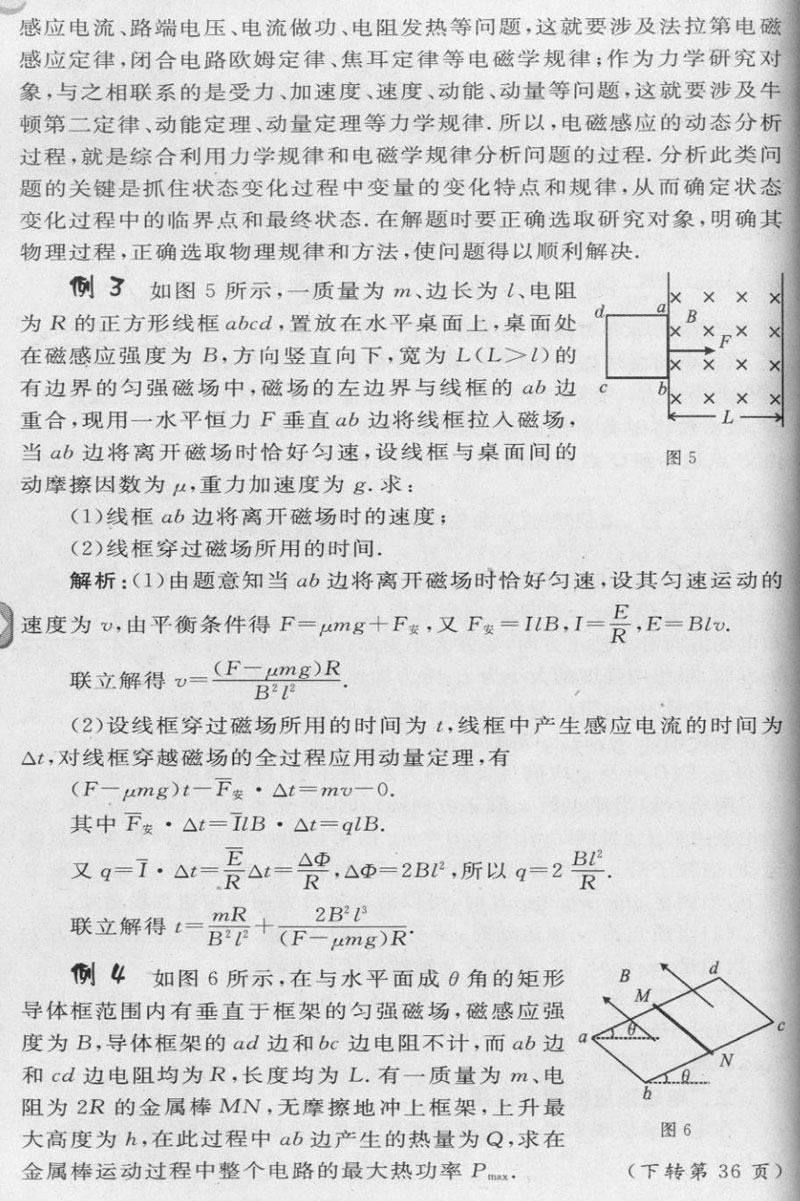 感应电流、路端电压、电流做功、电阻发热等问题,这就要涉及法拉第电磁
感应定律,闭合电路欧姆定律、焦耳定律等电磁学规律;作为力学研究对
象,与之相联系的是受力、加速度、速度、动能、动量等问题,这就要涉及牛
顿第二定律、动能定理、动量定理等力学规律.所以,电磁感应的动态分析
过程,就是综合利用力学规律和电磁学规律分析问题的过程.分析此类问
题的关键是抓住状态变化过程中变量的变化特点和规律,从而确定状态
变化过程中的临界点和最终状态.在解题时要正确选取研究对象,明确其
物理过程,正确选取物理规律和方法,使问题得以顺利解决.
例 3 如图 5 所示,一质量为 m、边长为 l、电阻
为 R 的正方形线框 abcd,置放在水平桌面上,桌面处
在磁感应强度为 B,方向竖直向下,宽为 L(L>l)的
有边界的匀强磁场中,磁场的左边界与线框的 ab 边
重合,现用一水平恒力 F 垂直 ab 边将线框拉入磁场,
当 ab 边将离开磁场时恰好匀速,设线框与桌面间的
动摩擦因数为 μ,重力加速度为 g.求:
d a B F
c b L
图 5
(1)线框 ab 边将离开磁场时的速度;
(2)线框穿过磁场所用的时间.
解析:(1)由题意知当 ab 边将离开磁场时恰好匀速,设其匀速运动的
速度为 v,由平衡条件得 F=μmg+F安,又 F安=IlB,I=E/R,E=Blv.
联立解得 v=(F-μmg)R/B²l².
(2)设线框穿过磁场所用的时间为 t,线框中产生感应电流的时间为
Δt,对线框穿越磁场的全过程应用动量定理,有
(F-μmg)t-F̄安·Δt=mv-0.
其中 F̄安·Δt=ĪlB·Δt=qlB.
又 q=Ī·Δt=Ē/RΔt=ΔΦ/R,ΔΦ=2Bl²,所以 q=2 Bl²/R.
联立解得 t=mR/B²l²+2B²l³/(F-μmg)R.
例 4 如图 6 所示,在与水平面成 θ 角的矩形
导体框范围内有垂直于框架的匀强磁场,磁感应强
度为 B,导体框架的 ad 边和 bc 边电阻不计,而 ab 边
和 cd 边电阻均为 R,长度均为 L.有一质量为 m、电
阻为 2R 的金属棒 MN,无摩擦地冲上框架,上升最
大高度为 h,在此过程中 ab 边产生的热量为 Q,求在
金属棒运动过程中整个电路的最大热功率 Pmax.
B d
M
a θ c
N
θ
b
图 6
(下转第 36 页)